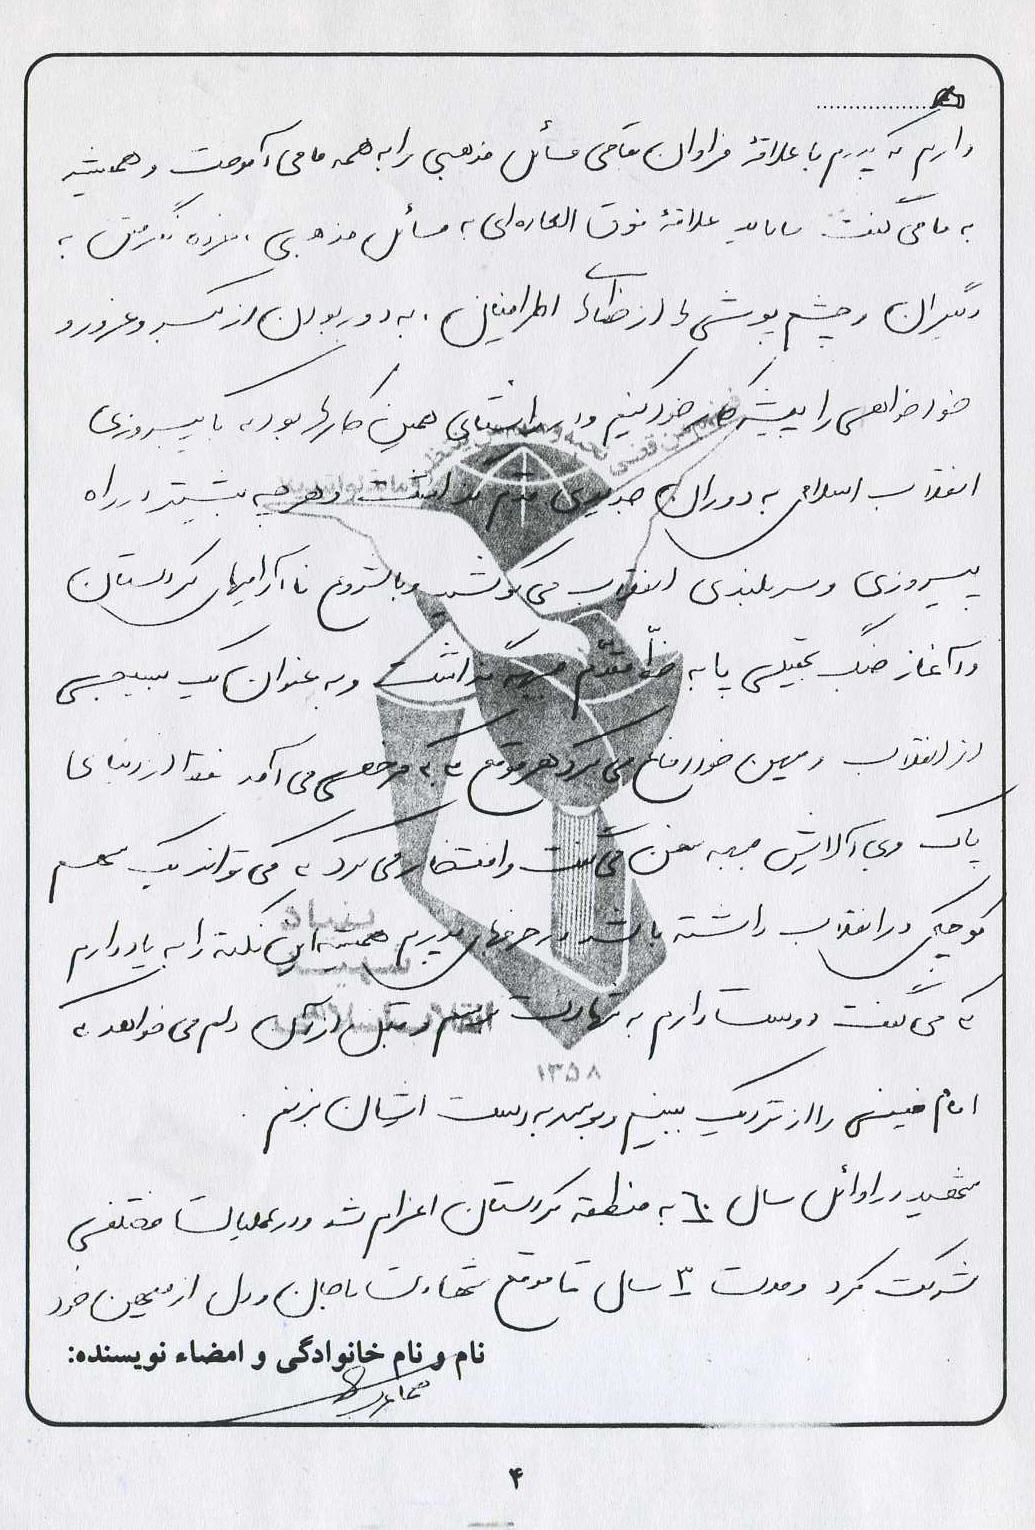 داریم که پدرم با علاقهٔ فراوان تمامی مسائل مذهبی را به همه ما می‌آموخت و همیشه
به ما می گفت ما باید علاقهٔ فوق العاده‌ای به مسائل مذهبی، خرده نگرفتن به
دیگران و چشم پوشی از خطای اطرافیان، به دور بودن از تکبر و غرور و
خودخواهی را پیشه کار خود کنیم و در راستای همین کارها بود که تا پیروزی
انقلاب اسلامی به دوران جدیدی قدم گذاشت و هر چه بیشتر در راه
پیروزی و سربلندی انقلاب می کوشید و با شروع ناآرامیهای کردستان
و آغاز جنگ تحمیلی پا به خطّ مقدّم جبهه گذاشت و به عنوان یک بسیجی
از انقلاب و میهن خود دفاع می کرد هر موقع که به مرخصی می آمد فقط از دنیای
پاک و بی آلایش جبهه سخن می گفت و افتخار می کرد که می تواند یک سهم
کوچکی در انقلاب داشته باشد در حرفهای پدرم همیشه این نکته را به یاد دارم
که می گفت دوست دارم به شهادت برسم و قبل از آن دلم می خواهد که
امام خمینی را از نزدیک ببینم و بوسه به دست ایشان بزنم.
شهید در اوائل سال ۶۰ به منطقه کردستان اعزام شد و در عملیات مختلفی
شرکت کرد و مدت ۳ سال تا موقع شهادت با جان و دل از میهن خود
نام و نام خانوادگی و امضاء نویسنده:
۴
بنیاد
شهید
انقلاب اسلامی
۱۳۵۸